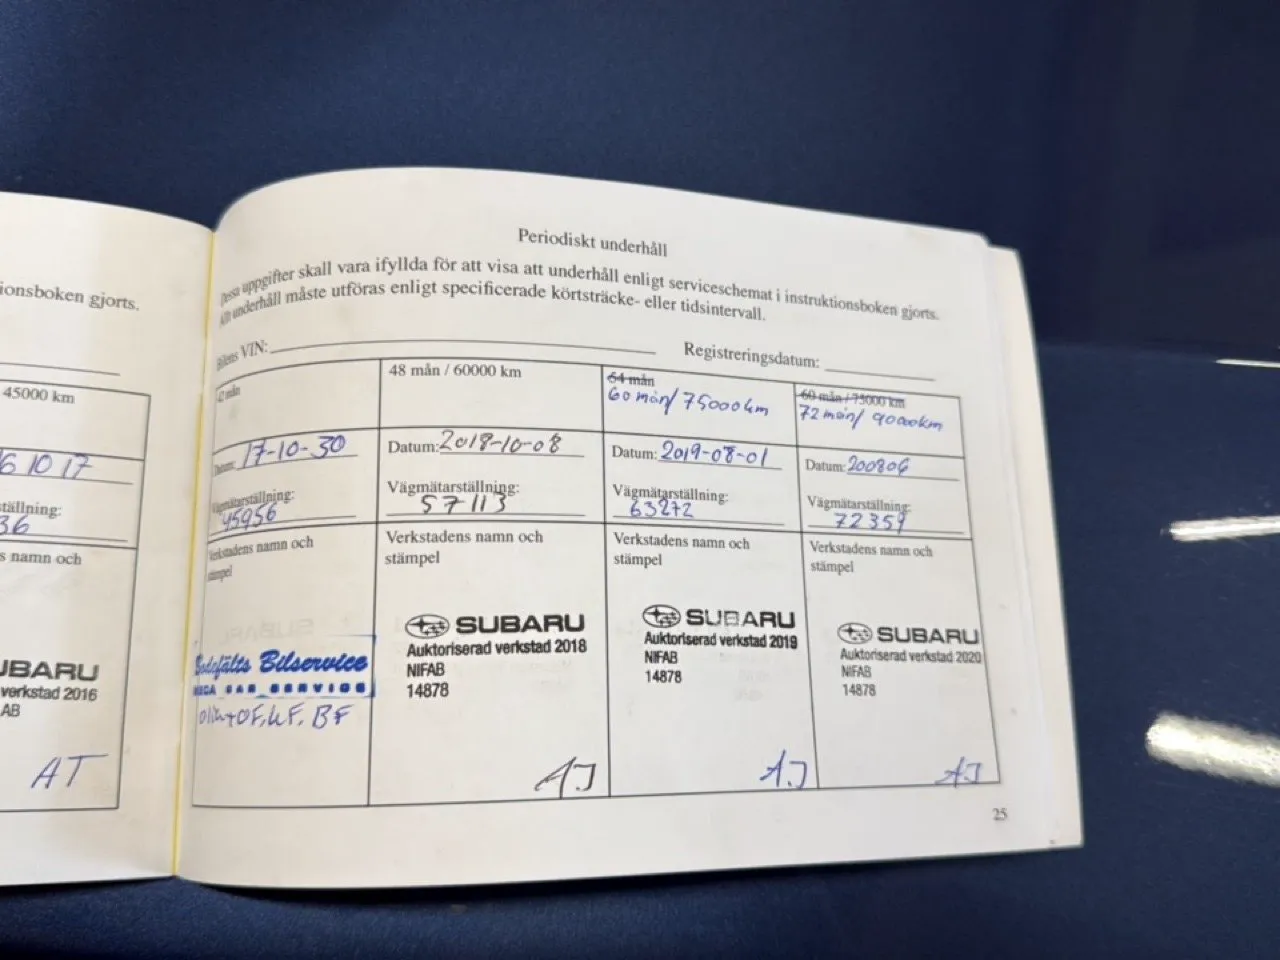 ionsboken gjorts.
45000 km
6 10 17
ställning:
36
s namn och
UBARU
verkstad 2016
AB
AT
Periodiskt underhåll
Dessa uppgifter skall vara ifyllda för att visa att underhåll enligt serviceschemat i instruktionsboken gjorts.
Allt underhåll måste utföras enligt specificerade körtsträcke- eller tidsintervall.
Bilens VIN:
Registreringsdatum:
42 mån
Datum: 17-10-30
Vägmätarställning:
45956
Verkstadens namn och
stämpel
Bilservice
CAR SERVICE
OF, KF, BF
48 mån / 60000 km
Datum: 2018-10-08
Vägmätarställning:
57113
Verkstadens namn och
stämpel
SUBARU
Auktoriserad verkstad 2018
NIFAB
14878
AJ
64 mån
60 mån/ 75000km
Datum: 2019-08-01
Vägmätarställning:
63272
Verkstadens namn och
stämpel
SUBARU
Auktoriserad verkstad 2019
NIFAB
14878
AJ
60 mån / 75000 km
72 mån/ 90000km
Datum: 200806
Vägmätarställning:
72359
Verkstadens namn och
stämpel
SUBARU
Auktoriserad verkstad 2020
NIFAB
14878
AJ
25